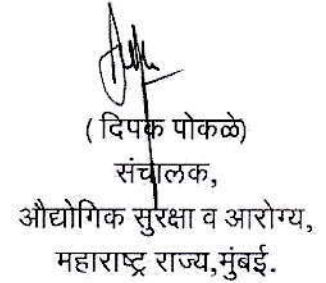 ( दिपक पोकळे)
संचालक,
औद्योगिक सुरक्षा व आरोग्य,
महाराष्ट्र राज्य,मुंबई.